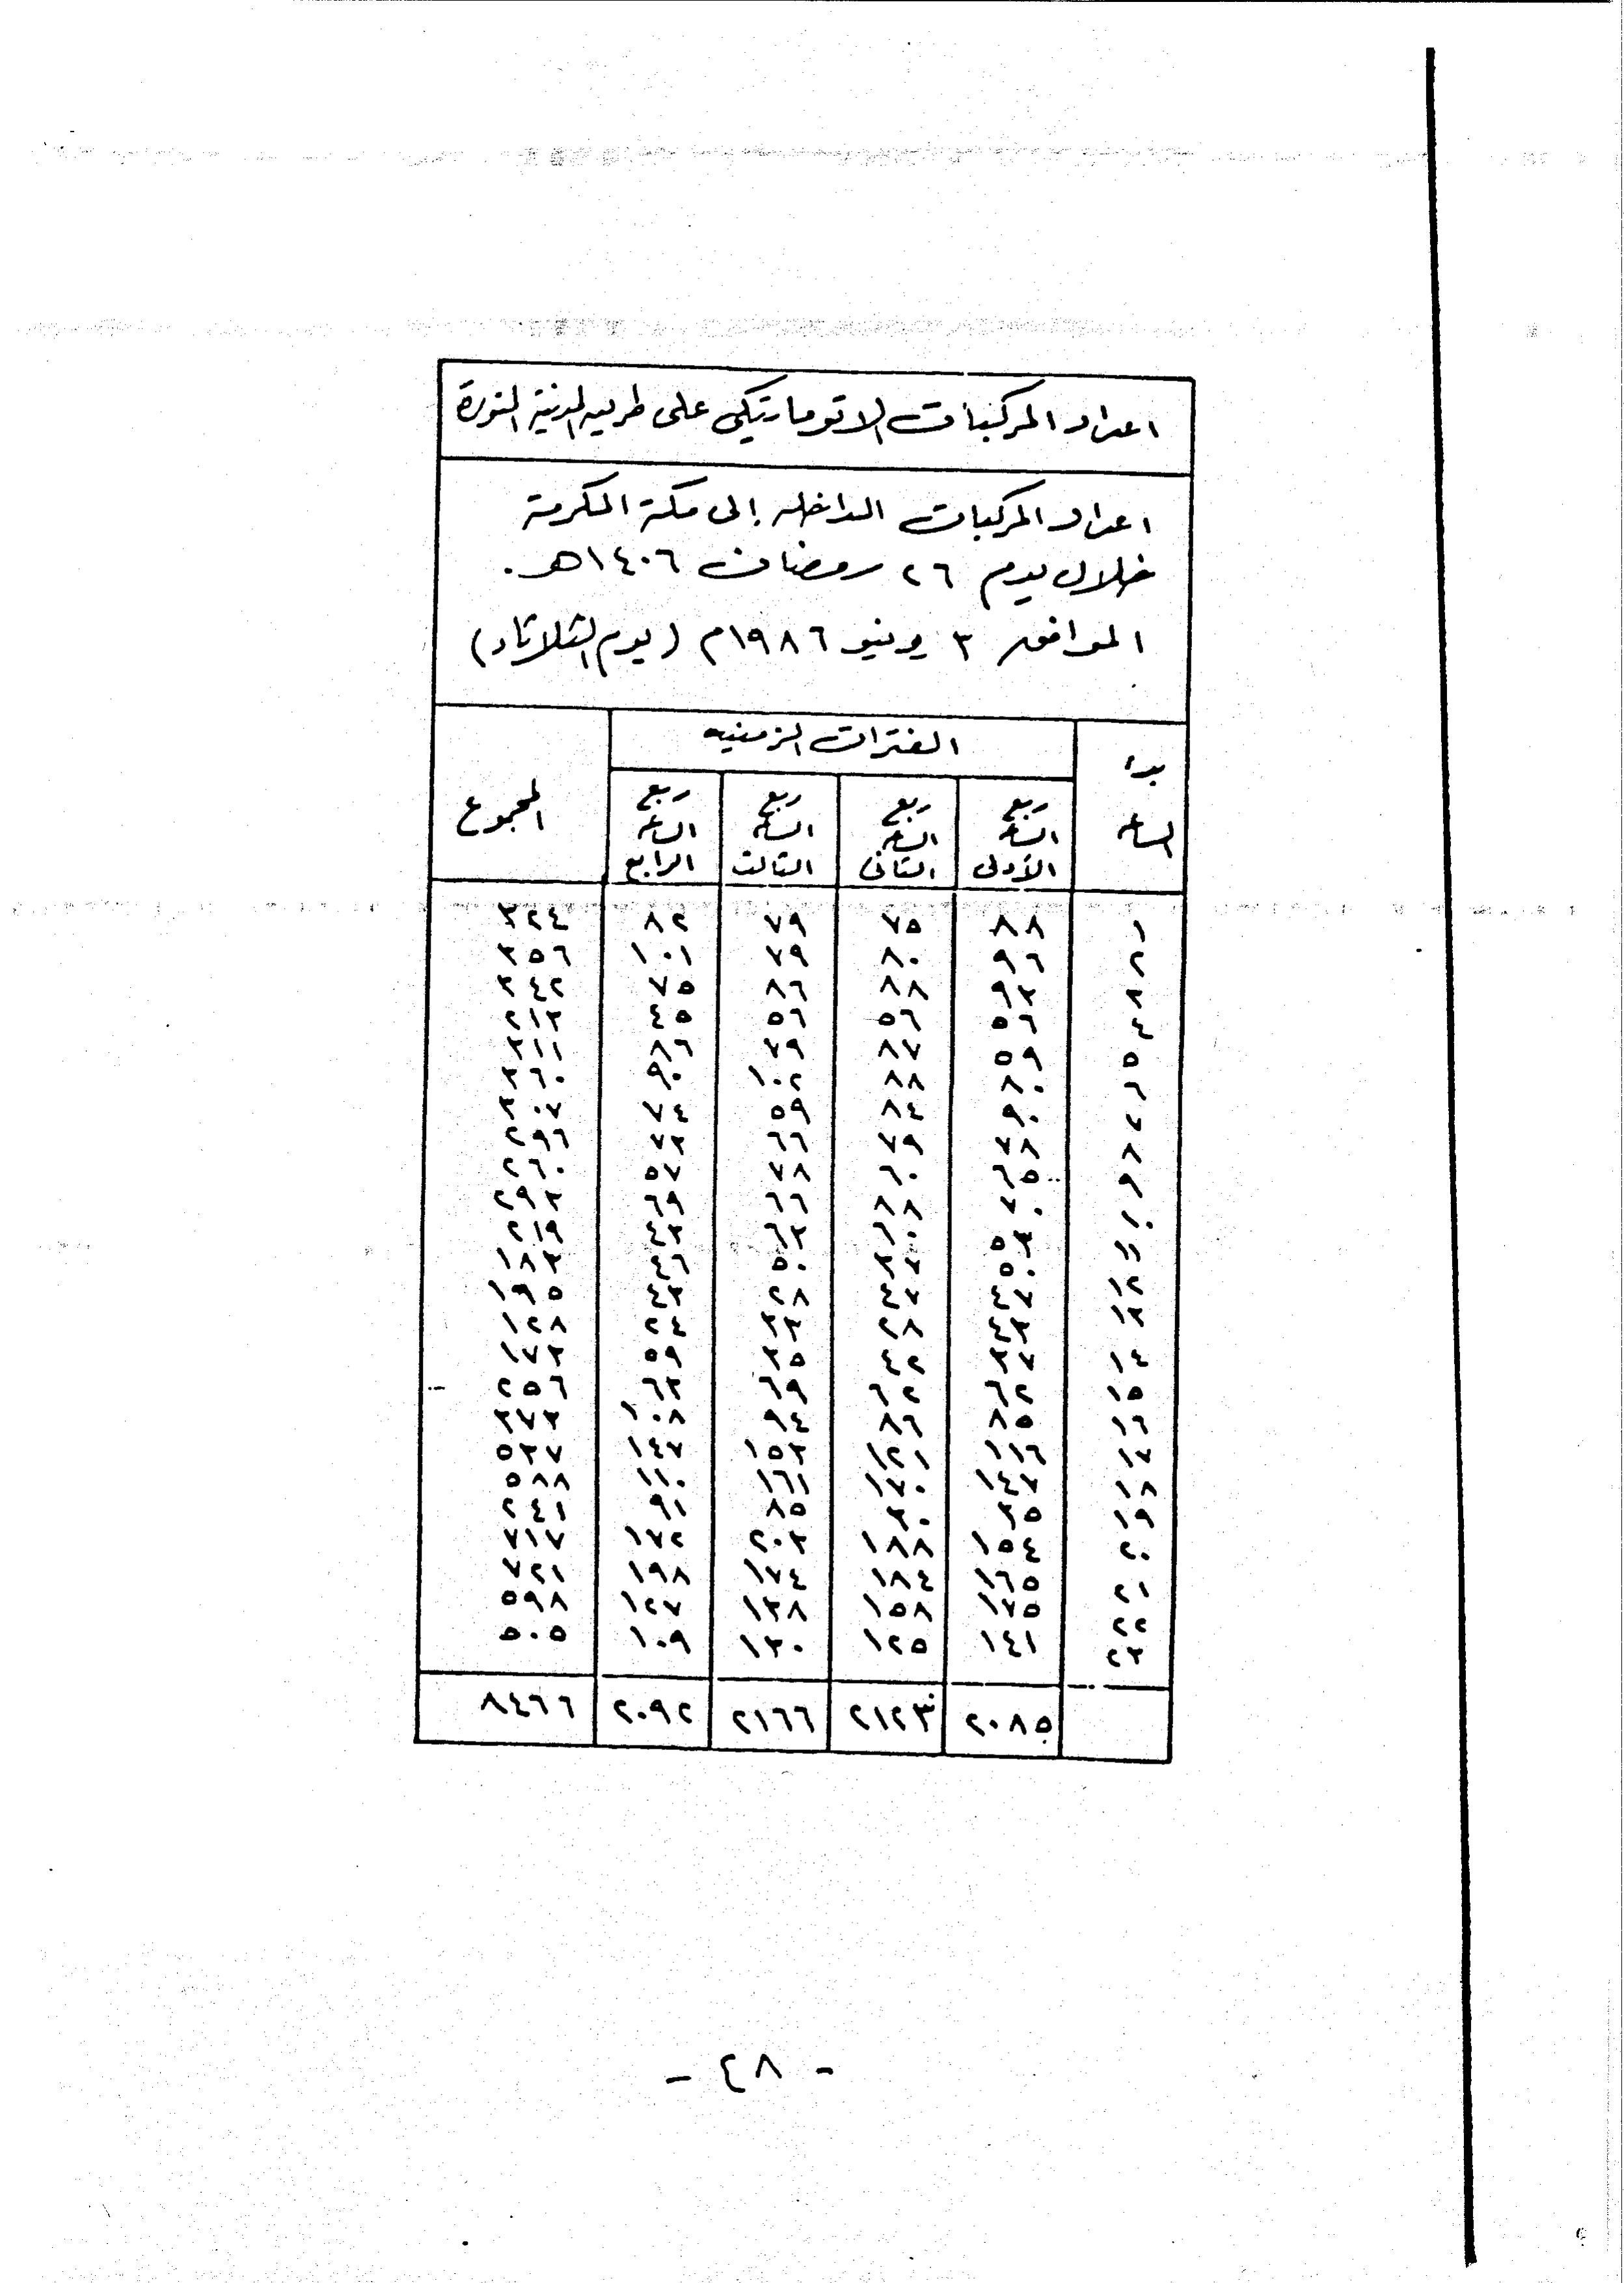 اعداد المركبات الاتوماتيكى على طريق المدينة المنورة
اعداد المركبات الداخلة إلى مكة المكرمة
خلال يوم ٢٦ رمضان ١٤٠٦هـ.
الموافق ٣ يونيو ١٩٨٦م (يوم الثلاثاء)
بدء الساعة الفترات الزمنية المجموع
ربع الساعة الأولى ربع الساعة الثانى ربع الساعة الثالث ربع الساعة الرابع
١ ٨٨ ٧٥ ٧٩ ٨٢ ٣٢٤
٢ ٩٦ ٨٠ ٧٩ ١٠١ ٣٥٦
٣ ٩٣ ٨٨ ٨٦ ٧٥ ٣٤٢
٤ ٥٦ ٥٦ ٥٦ ٤٥ ٢١٣
٥ ٥٩ ٨٧ ٧٩ ٨٦ ٣١١
٦ ٨٠ ٨٨ ١٠٢ ٩٠ ٣٦٠
٧ ٩٠ ٨٤ ٥٩ ٧٤ ٣٠٧
٨ ٧٨ ٧٩ ٦٦ ٧٣ ٢٩٦
٩ ٦٥ ٦٠ ٧٨ ٥٧ ٢٦٠
١٠ ٧٠ ٨٨ ٦٦ ٦٩ ٢٩٣
١١ ٥٣ ٦٠ ٦٣ ٤٣ ٢١٩
١٢ ٥٠ ٣٧ ٥٠ ٤٦ ١٨٣
١٣ ٤٧ ٤٧ ٢٨ ٤٣ ١٩٥
٤٣ ٢٨ ٣٣ ٢٤ ١٢٨
١٤ ٣٧ ٤٢ ٣٥ ٥٩ ١٧٣
١٥ ٦٢ ٦٢ ٦٩ ٦٣ ٢٥٦
١٦ ٨٥ ٨٦ ٩٤ ١٠٨ ٣٧٣
١٧ ١١٦ ١٢١ ١٥٣ ١٤٧ ٥٣٧
١٨ ١٤٧ ١٧٠ ١٦١ ١١٠ ٥٨٨
١٩ ٣٥ ٣٠ ٨٥ ٩١ ٢٤١
٢٠ ١٥٤ ١٨٨ ٢٠٣ ١٧٢ ٧١٧
٢١ ١٦٥ ١٨٤ ١٧٤ ١٩٨ ٧٢١
٢٢ ١٧٥ ١٥٨ ١٣٨ ١٢٧ ٥٩٨
٢٣ ١٤١ ١٢٥ ١٣٠ ١٠٩ ٥٠٥
٢٠٨٥ ٢١٢٣ ٢١٦٦ ٢٠٩٢ ٨٤٦٦
- ٤٨ -